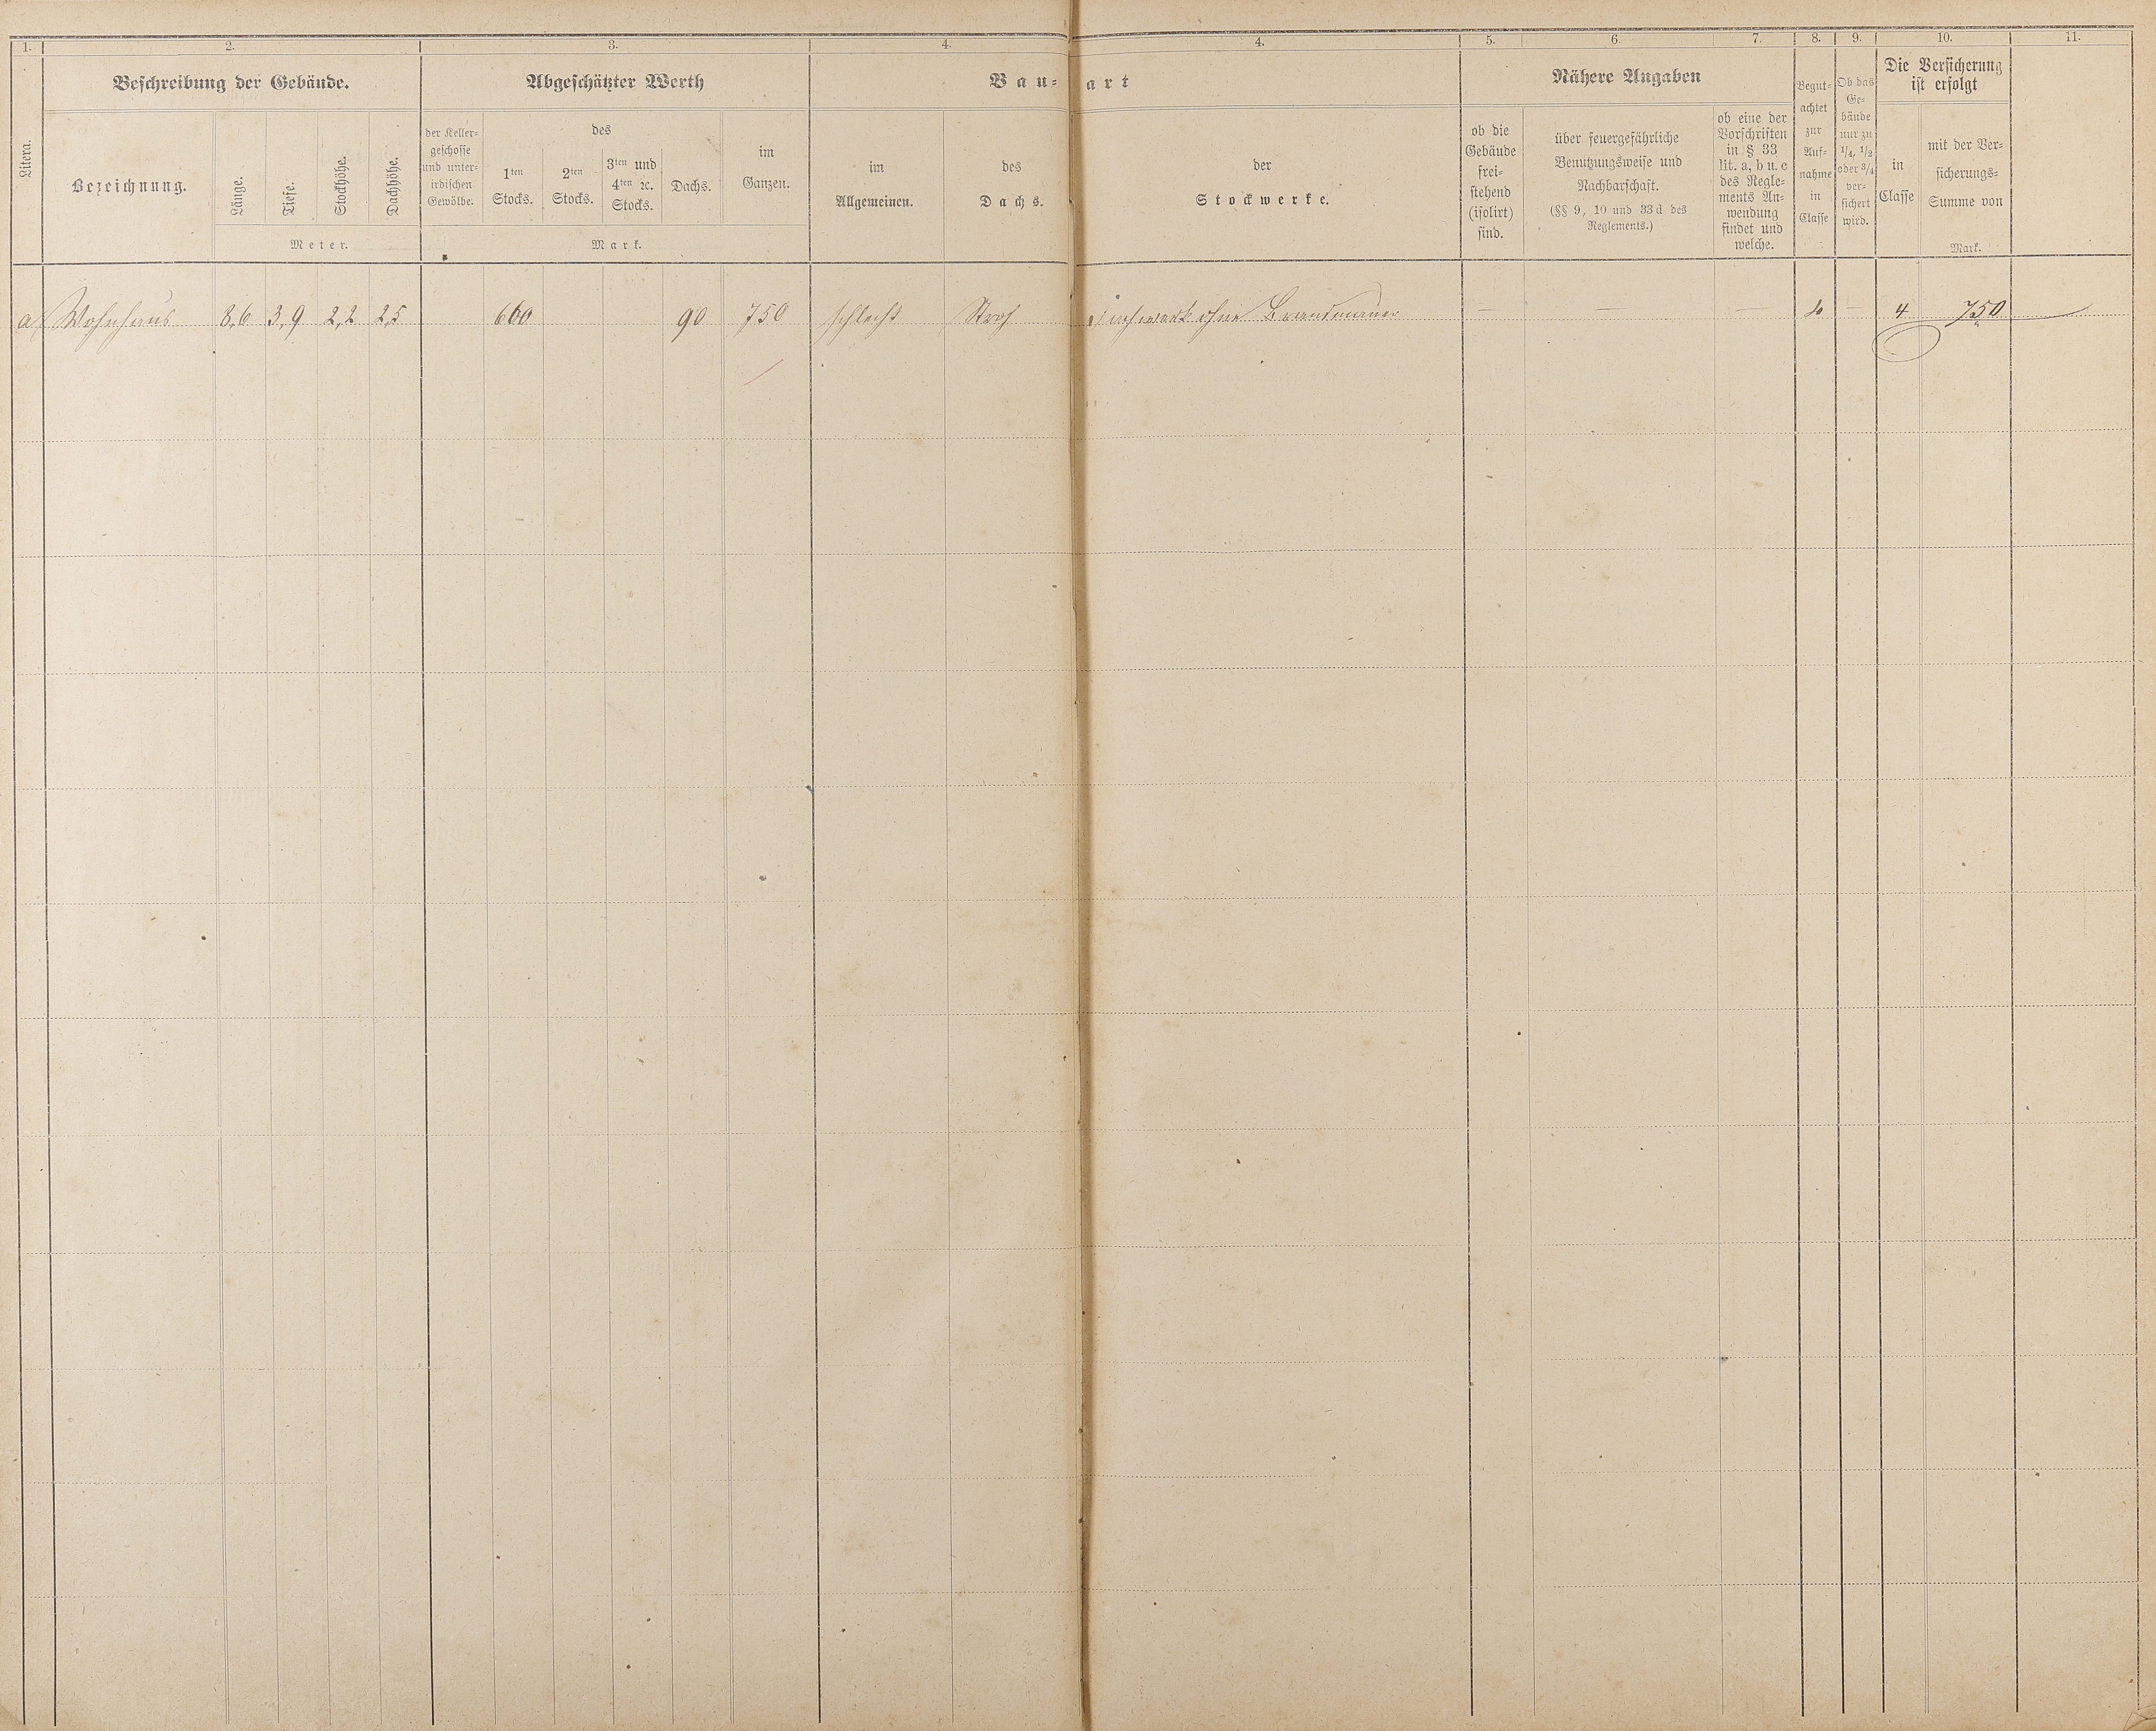 1. 2. 3. 4. 4. 5. 6. 7. 8. 9. 10. 11.
Litera.
Beschreibung der Gebäude.
Bezeichnung.
Länge.
Tiefe.
Stockhöhe.
Dachhöhe.
Meter.
Abgeschätzter Werth
der Keller-
geschosse
und unter-
irdischen
Gewölbe.
des
1ten
Stocks.
2ten
Stocks.
3ten und
4ten ꝛc.
Stocks.
Dachs.
im
Ganzen.
Mark.
Bau-art
im
Allgemeinen.
des
Dachs.
der
Stockwerke.
Nähere Angaben
ob die
Gebäude
frei-
stehend
(isolirt)
sind.
über feuergefährliche
Benutzungsweise und
Nachbarschaft.
(§§ 9, 10 und 33d des
Reglements.)
ob eine der
Vorschriften
in § 33
lit. a, b u. c
des Regle-
ments An-
wendung
findet und
welche.
Begut-
achtet
zur
Auf-
nahme
in
Classe
Ob das
Ge-
bäude
nur zu
1/4, 1/2
oder 3/4
ver-
sichert
wird.
Die Versicherung
ist erfolgt
in
Classe
mit der Ver-
sicherungs-
Summe von
Mark.
a Wohnhaus 8,6 3,9 2,2 2,5 660 90 750 schlecht Stroh Fachwerk ohne Brandmauer — — — 4 — 4 750